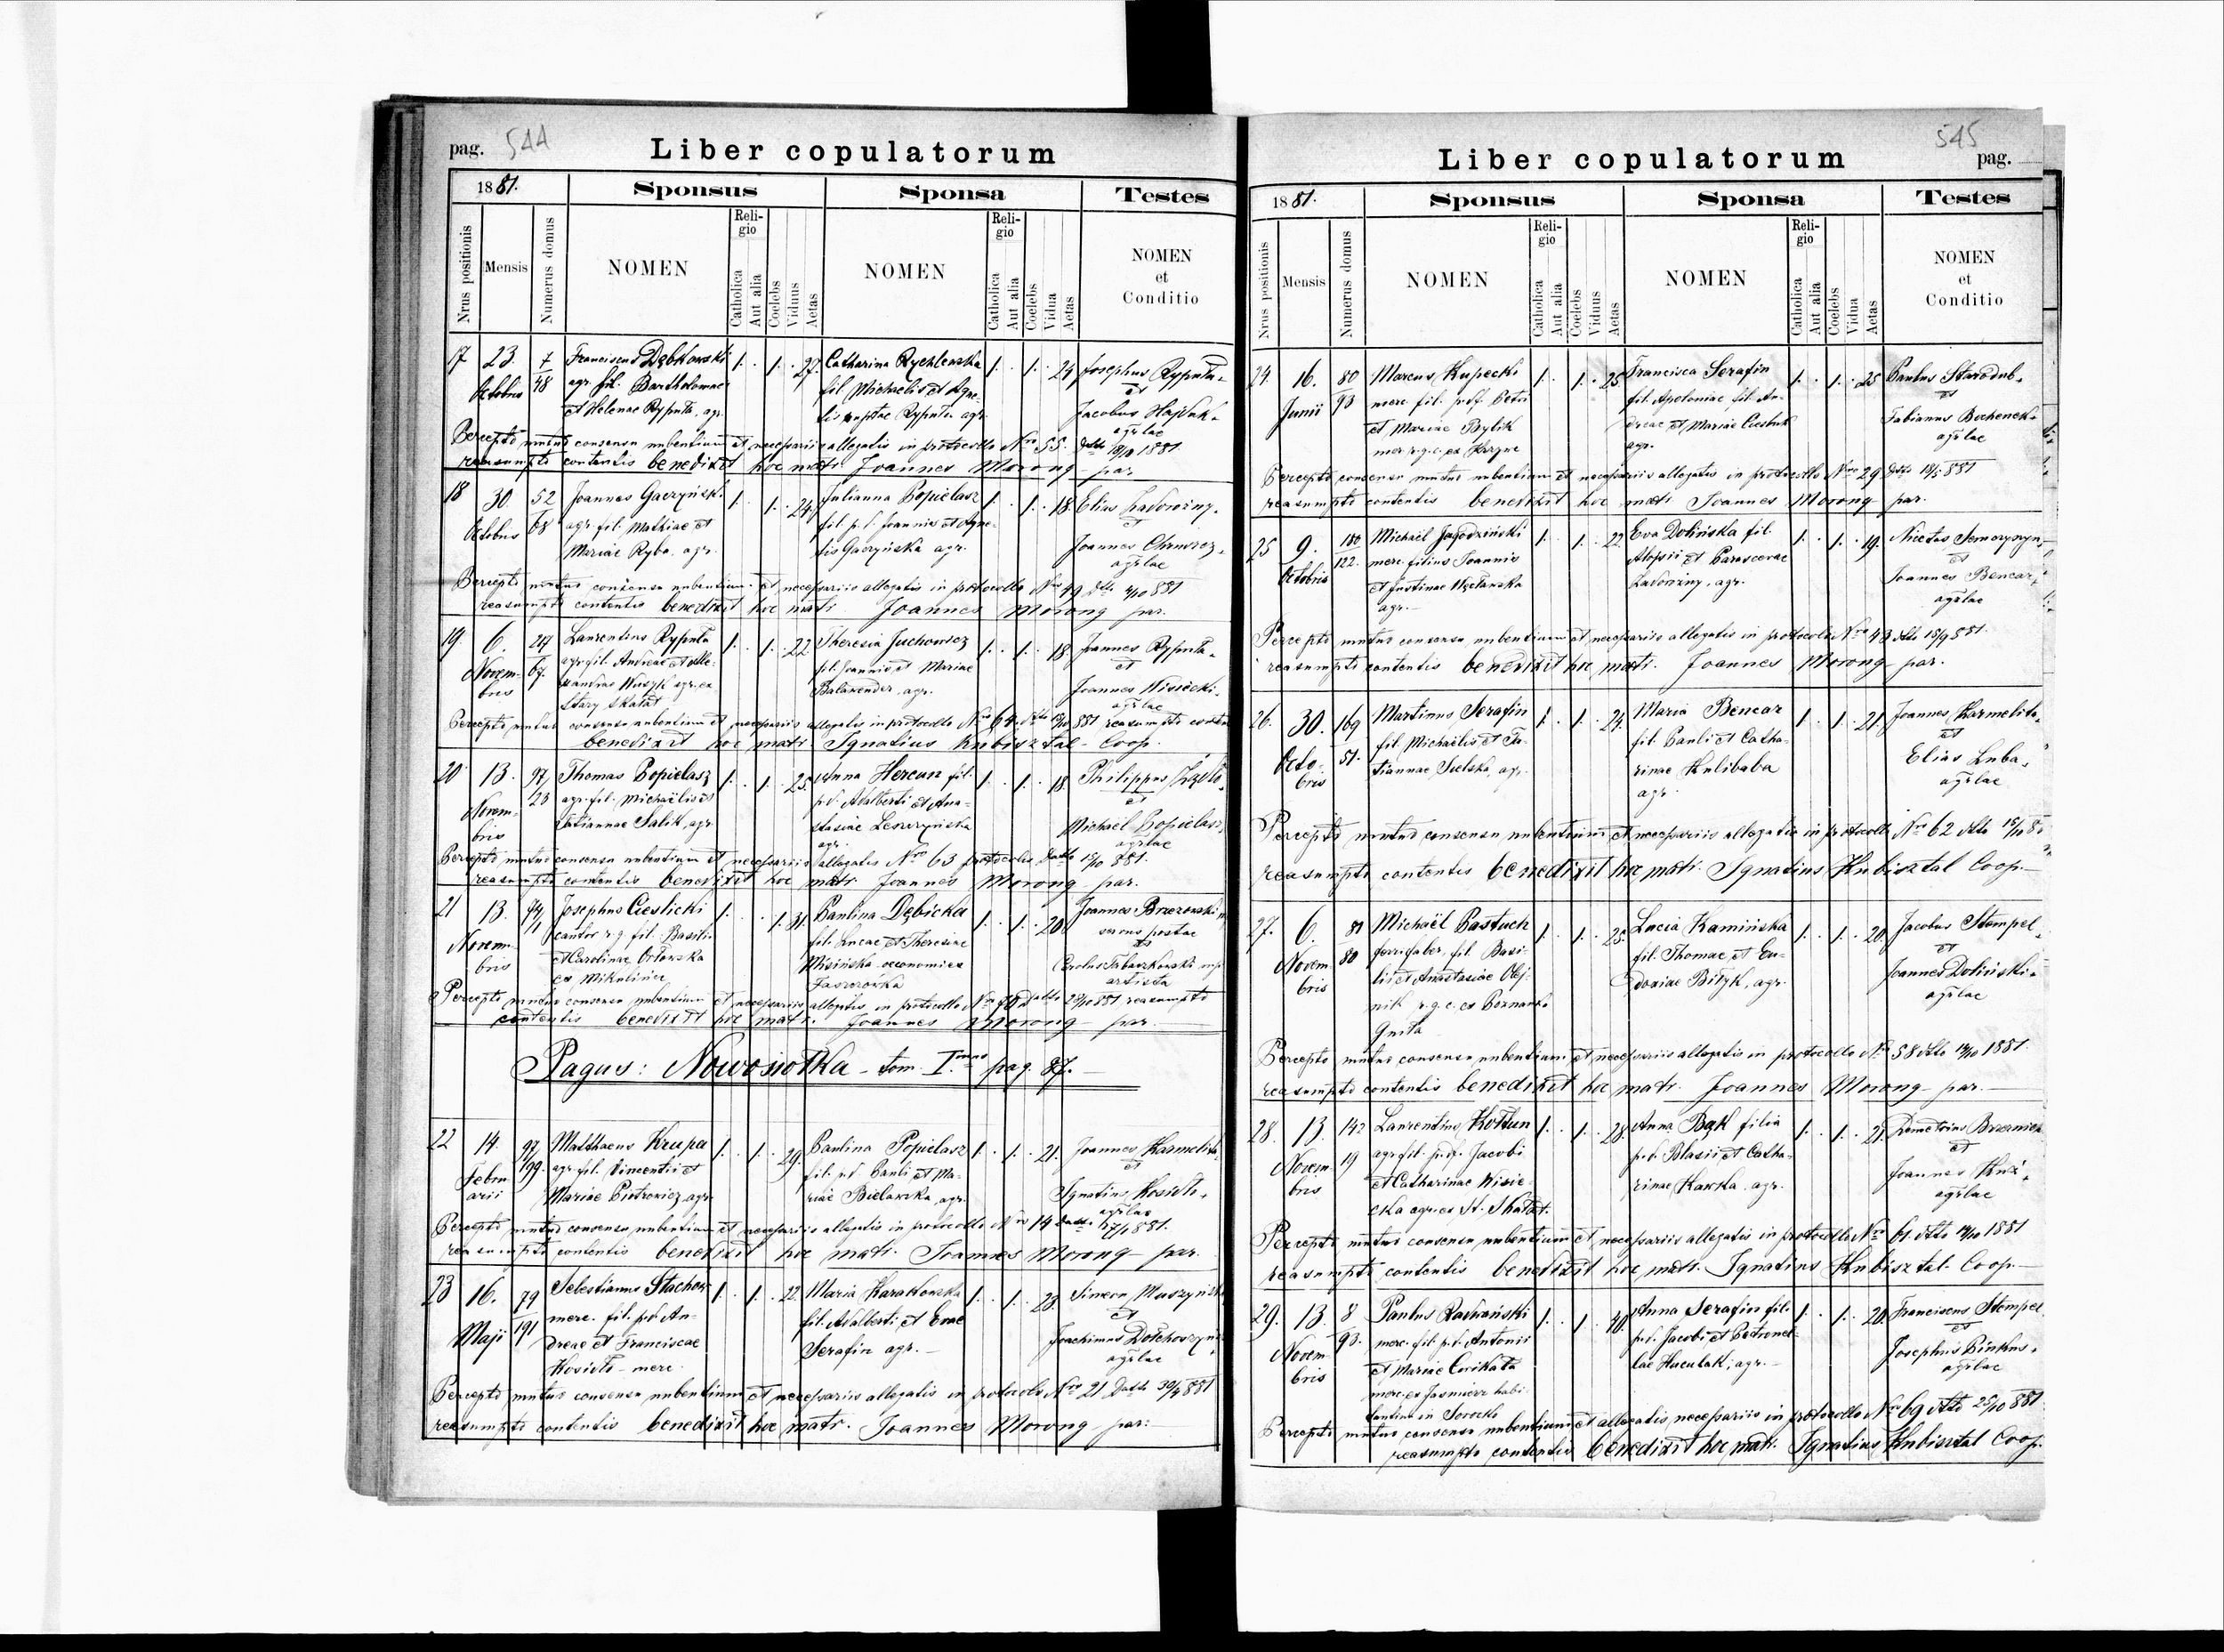 pag. 544
Liber copulatorum
1881.
Sponsus
Sponsa
Testes
Nrus positionis
Mensis
Numerus domus
NOMEN
Religio
Catholica
Aut alia
Coelebs
Viduus
Aetas
NOMEN
Religio
Catholica
Aut alia
Coelebs
Vidua
Aetas
NOMEN
et
Conditio
17 23. Octobris 7/48
Franciscus Dębkowski
agr. fil. Bartholomaei
et Helenae Rypnta, agr.
1. 1. 27.
Catharina Rychlewska
fil. Michaelis et Agne-
tis nuptae Rypnta agr.
1. 1. 24
Josephus Rypnta
et
Jacobus Hajduk
agrlae
Percepto mutuo consensu nubentium et necessariis allegatis in protocollo Nro 55. 1881
reasumpto contentis benedixit hoc matr. Joannes Morong par.
18 30. Octobris 52/68
Joannes Gaczyński
agr. fil. Mathiae et
Mariae Ryba, agr.
1. 1. 24
Julianna Popielasz
fil. p.d. Joannis et Agne-
tis Gaczyńska agr.
1. 1. 18.
Elias Zadorożny
et
Joannes
agrlae
Percepto mutuo consensu nubentium et necessariis allegatis in protocollo Nro 881
reasumpto contentis benedixit hoc matr. Joannes Morong par.
19 6. Novembris 67.
Laurentius Rypnta
agr. fil. Andreae et Ale-
xandrae Wusyk agr. ex
Stary Skałat
1. 1. 22
Theresia Juchowicz
fil. Joannis et Mariae
Balaxender, agr.
1. 1. 18.
Joannes Rypnta
et
Joannes Wisiecki
agrlae
Percepto mutuo consensu nubentium et necessariis allegatis in protocollo Nro 64. 881 reasumpto
benedixit hoc matr. Ignatius Kubisztal Coop.
20 13. Novembris 97/23
Thomas Popielasz
agr. fil. Michaëlis et
Tatiannae Salik, agr.
1. 1. 25.
Anna Hercun fil.
p.d. Adalberti et Ana-
stasiae Leszczyńska
agr.
1. 1. 18.
Philippus
et
Michaël Popielasz
agrlae
Percepto mutuo consensu nubentium et necessariis allegatis Nro 63 protocollo 881.
reasumpto contentis benedixit hoc matr. Joannes Morong par.
21 13. Novembris
Josephus Cieslicki
cantor r.g. fil. Basilii
et Carolinae Orłowska
ex Mikulinie
1. 1. 31.
Paulina Dębicka
fil. Lucae et Theresiae
Misińska oeconomiea
1. 1. 20
Joannes Brzezowski
servus postae
et
artista
Percepto mutuo consensu nubentium et necessariis allegatis in protocollo 881 reasumpto
contentis benedixit hoc matr. Joannes Morong par.
Pagus: Nowosiołka – tom. I. pag. 87.
22 14. Februarii 97/199.
Matthaeus Krupa
agr. fil. Vincentii et
Mariae Piotrowicz agr.
1. 1. 29.
Paulina Popielasz
fil. p.d. Pauli et Ma-
riae Bielawska, agr.
1. 1. 21.
Joannes Karmelita
et
Ignatius Kosiolo
agrlae
Percepto mutuo consensu nubentium et necessariis allegatis in protocollo Nro 14 881.
reasumpto contentis benedixit hoc matr. Joannes Morong par.
23 16. Maji 79/191
Celestianus Stachow
merc. fil. p.d. An-
dreae et Franciscae
Kosiolo – merc.
1. 1. 22
Maria Karakowska
fil. Adalberti et Evae
Serafin agr.
1. 1. 23.
Simeon Muszyński
et
Joachimus
agrlae
Percepto mutuo consensu nubentium et necessariis allegatis in protocollo Nro 21 30/4 881
reasumpto contentis benedixit hoc matr. Joannes Morong par.
545 pag.
Liber copulatorum
1881.
Sponsus
Sponsa
Testes
Nrus positionis
Mensis
Numerus domus
NOMEN
Religio
Catholica
Aut alia
Coelebs
Viduus
Aetas
NOMEN
Religio
Catholica
Aut alia
Coelebs
Vidua
Aetas
NOMEN
et
Conditio
24. 16. Junii 80/93
Marcus Kupecki
merc. fil. p.d. Petri
et Mariae Bylik
1. 1. 25
Francisca Serafin
fil. Apoloniae fil. An-
dreae et Mariae
agr.
1. 1. 25
Paulus Starodub
et
Fabianus Bochenek
agrlae
Percepto consensu mutuo nubentium et necessariis allegatis in protocollo Nro 29 18/5 881
reasumpto contentis benedixit hoc matr. Joannes Morong par.
25 9. Octobris 180/122.
Michaël Jagodziński
merc. filius Joannis
et Justinae Węclawska
agr.
1. 1. 22
Eva Dolińska fil.
Aloysii et Parascevae
Zadorożny, agr.
1. 1. 19.
Nicetas
et
Joannes Bencar
agrlae
Percepto mutuo consensu nubentium et necessariis allegatis in protocollo Nro 43 15/9 881.
reasumpto contentis benedixit hoc matr. Joannes Morong par.
26. 30. Octobris 169/51.
Martinus Serafin
fil. Michaëlis et Ta-
tiannae Sielska, agr.
1. 1. 24.
Maria Bencar
fil. Pauli et Catha-
rinae Kulibaba
agr.
1. 1. 21.
Joannes Karmelita
et
Elias Luba
agrlae
Percepto mutuo consensu nubentium et necessariis allegatis in protocollo Nro 62
reasumpto contentis benedixit hoc matr. Ignatius Kubisztal Coop.
27. 6. Novembris 81/80
Michaël Pastuch
ferrifaber, fil. Basi-
lii et Anastasiae Olej-
nik r.g.c. ex Poznanka
Gniła
1. 1. 25.
Lucia Kamińska
fil. Thomae et Eu-
doxiae Bityk, agr.
1. 1. 20.
Jacobus Stempel
et
Joannes Doliński
agrlae
Percepto mutuo consensu nubentium et necessariis allegatis in protocollo Nro 58 1881.
reasumpto contentis benedixit hoc matr. Joannes Morong par.
28. 13. Novembris 142/19
Laurentius Kołtun
agr. fil. p.d. Jacobi
et Catharinae Wisie-
cka agr. ex St. Skałat.
1. 1. 28.
Anna Bąk filia
p.d. Blasii et Catha-
rinae Kawka, agr.
1. 1. 21.
Demetrius
et
Joannes
agrlae
Percepto mutuo consensu nubentium et necessariis allegatis in protocollo Nro 61. 1881
reasumpto contentis benedixit hoc matr. Ignatius Kubisztal Coop.
29. 13. Novembris 8/93.
Paulus
merc. fil. p.d. Antonii
et Mariae
merc. ex Jasmierz habi-
tantium in Sorocko
1. 1.
Anna Serafin fil.
p.d. Jacobi et Petronel-
lae Huculak, agr.
1. 1. 20.
Franciscus Stempel
et
Josephus Binkus
agrlae
Percepto mutuo consensu nubentium et allegatis necessariis in protocollo Nro 69 25/10 881
reasumpto contentis benedixit hoc matr. Ignatius Kubisztal Coop.